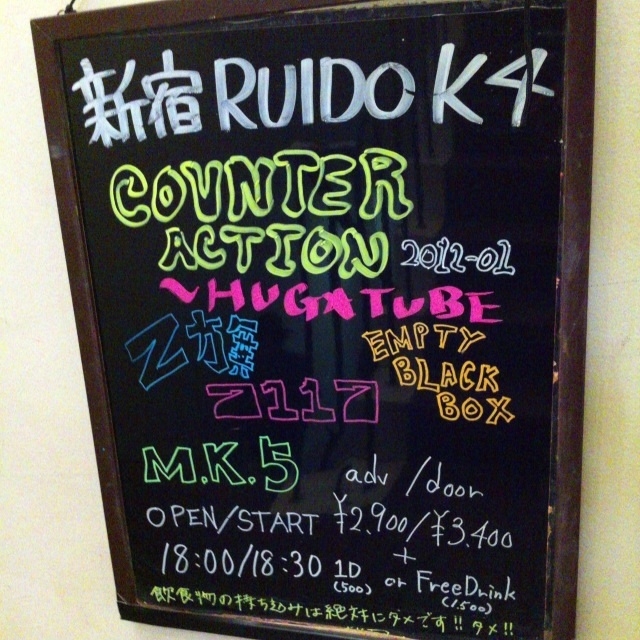 新宿 RUIDO K4
COUNTER
ACTION 2012-01
~HUGATUBE
EMPTY
BLACK
BOX
7117
M.K.5
adv /door
OPEN/START ¥2.900/¥3.400
+
18:00/18:30 1D or FreeDrink
(500) (1.500)
飲食物の持ち込みは絶対にダメです!! ダメ!!